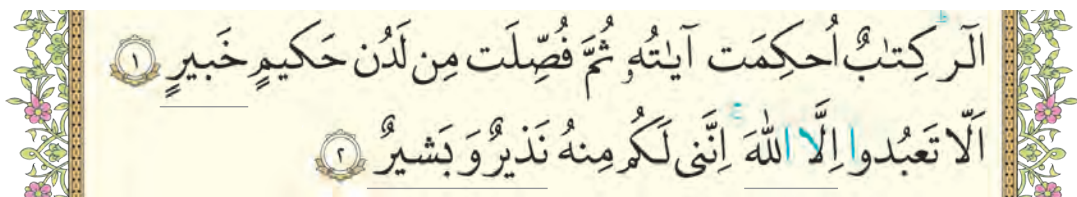 الٓر كِتٰبٌ اُحكِمَت آياتُهُ ثُمَّ فُصِّلَت مِن لَدُن حَكيمٍ خَبيرٍ ١
اَلّا تَعبُدوا اِلَّا اللّٰهَ اِنَّنى لَكُم مِنهُ نَذيرٌ وَ بَشيرٌ ٢